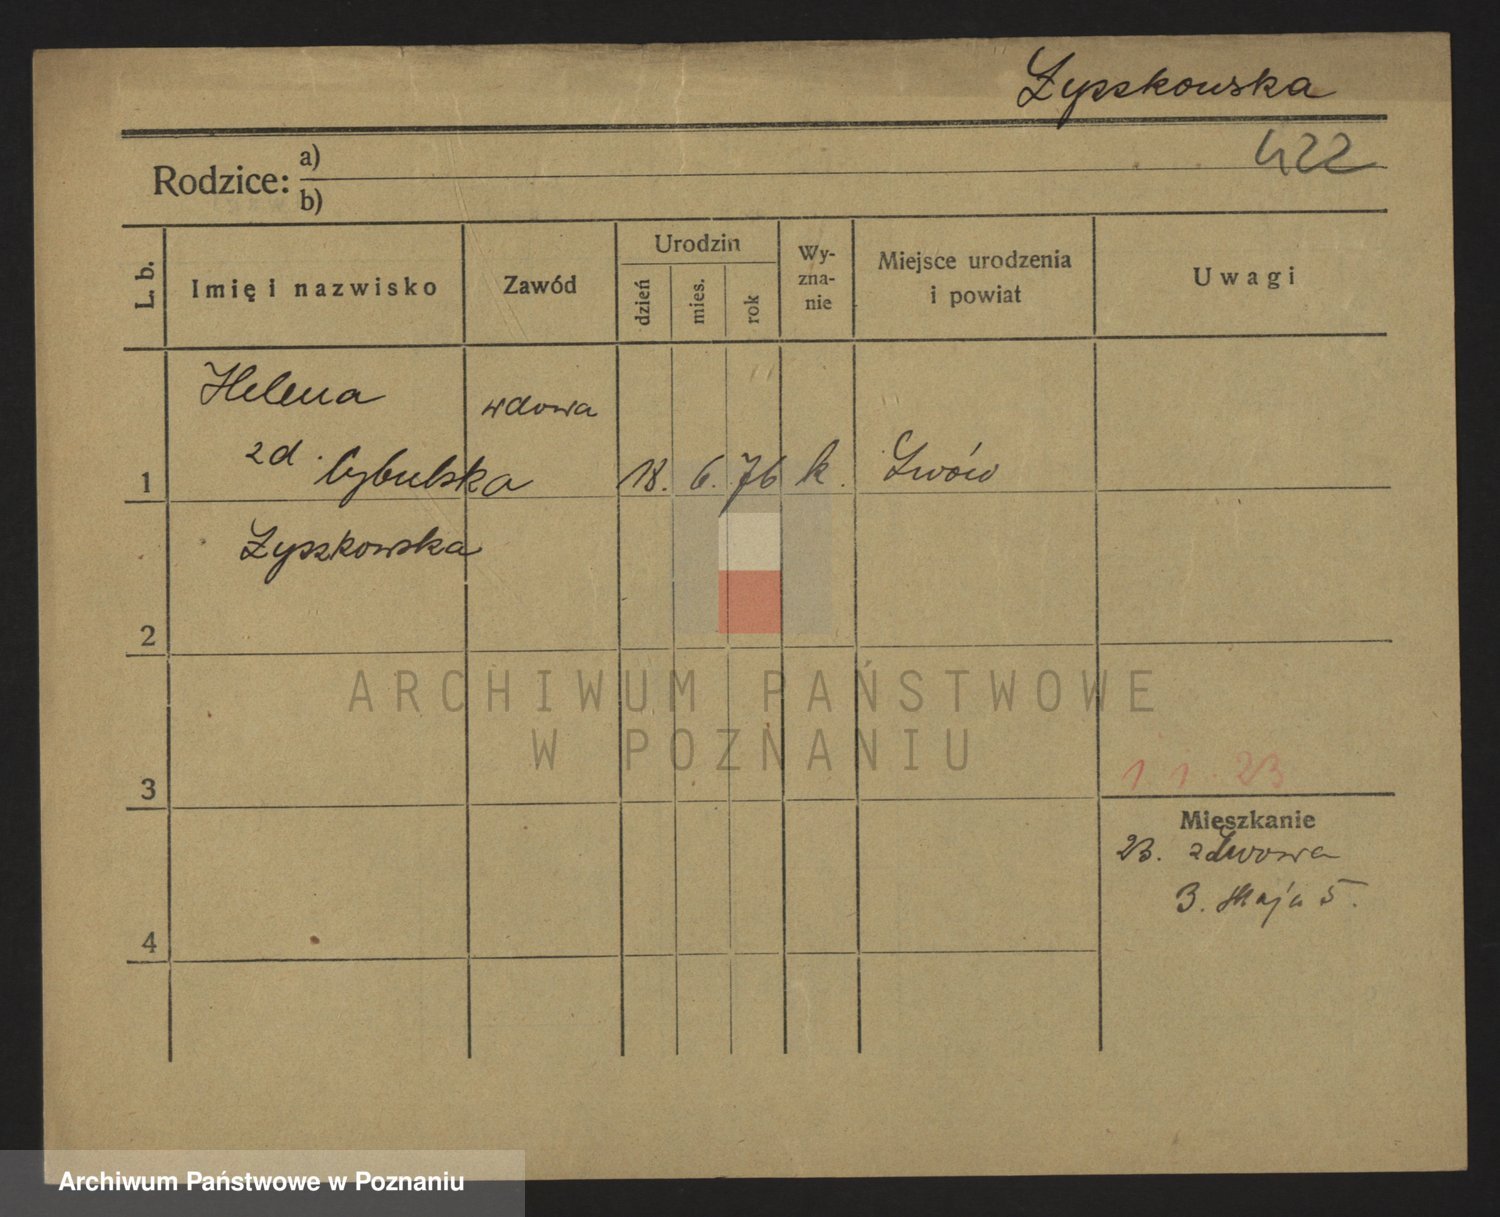 Łyszkowska
422
Rodzice: a)
b)
L. b.
Imię i nazwisko
Zawód
Urodzin
dzień
mies.
rok
Wy-
zna-
nie
Miejsce urodzenia
i powiat
Uwagi
Helena
wdowa
zd. Cybulska
1
18. 6. 76 k. Lwów
Łyszkowska
2
ARCHIWUM PAŃSTWOWE
W POZNANIU
3
1. 1. 23
Mieszkanie
23. z Lwowa
3. Maja 5.
4
Archiwum Państwowe w Poznaniu